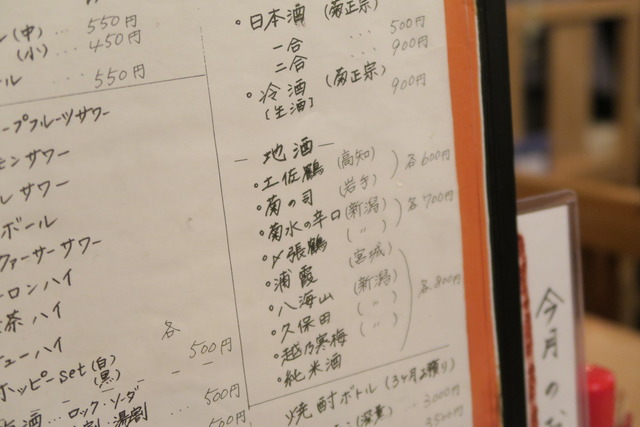 (中) 550円
(小) 450円
ル ... 550円
プフルーツサワー
モンサワー
レサワー
ボール
ファーサーサワー
ーロンハイ
茶ハイ
ューハイ
各500円
ホッピーset (白)
(黒)
酒...ロック・ソーダ
湯割 500円
500円
・日本酒 (菊正宗)
一合 ... 500円
二合 ... 900円
・冷酒 (菊正宗) 900円
[生酒]
― 地酒 ―
・土佐鶴 (高知)
・菊の司 (岩手)
各600円
・菊水の辛口 (新潟)
・〆張鶴 (〃)
各700円
・浦霞 (宮城)
・八海山 (新潟)
・久保田 (〃)
・越乃寒梅 (〃)
・純米酒
各800円
焼酎ボトル (3ヶ月預り)
3000円
3500円
今月の